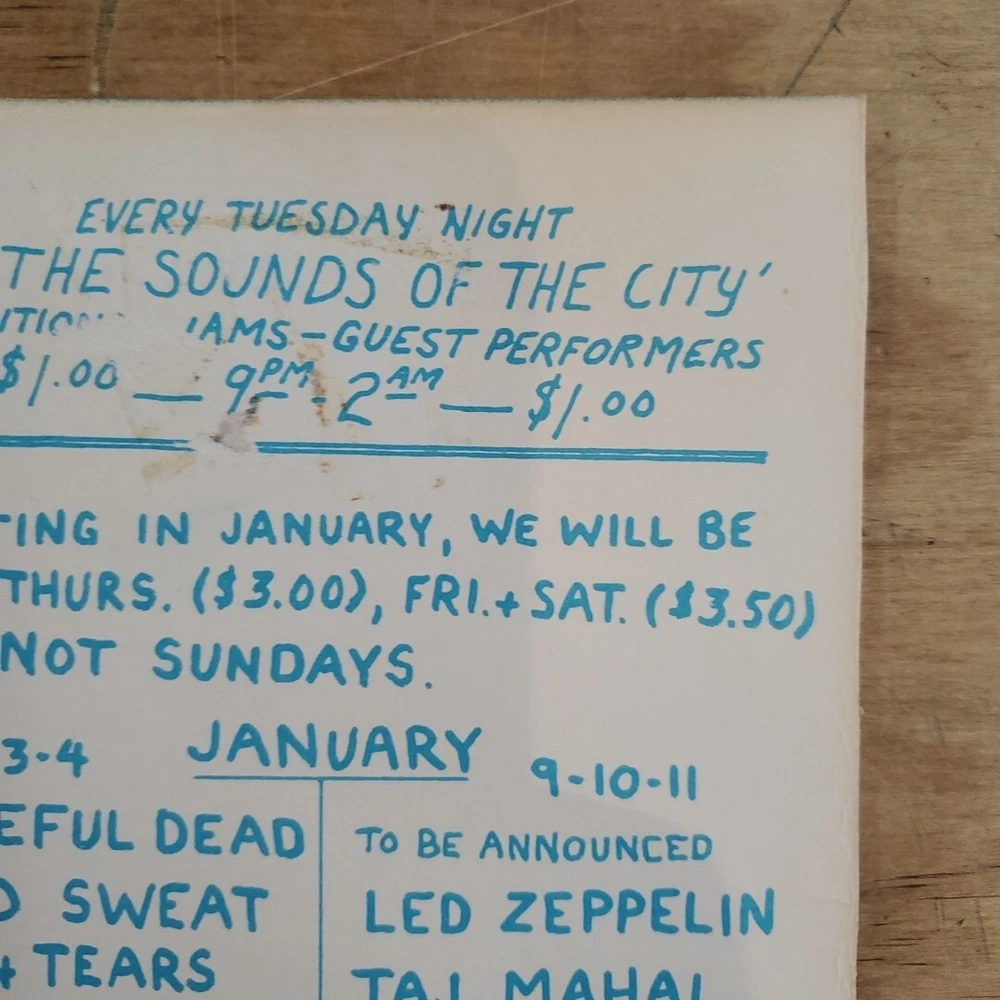 EVERY TUESDAY NIGHT
THE SOUNDS OF THE CITY'
–GUEST PERFORMERS
$1.00 — 9PM - 2AM — $1.00
IN JANUARY, WE WILL BE
THURS. ($3.00), FRI.+ SAT. ($3.50)
NOT SUNDAYS.
JANUARY
3-4
9-10-11
EFUL DEAD
TO BE ANNOUNCED
SWEAT
LED ZEPPELIN
+ TEARS
TAJ MAHAL